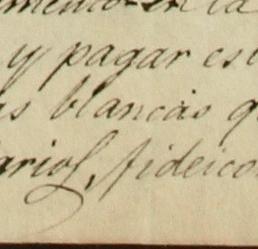 mento en la
y pagar es
as blancas q
arios, fideico